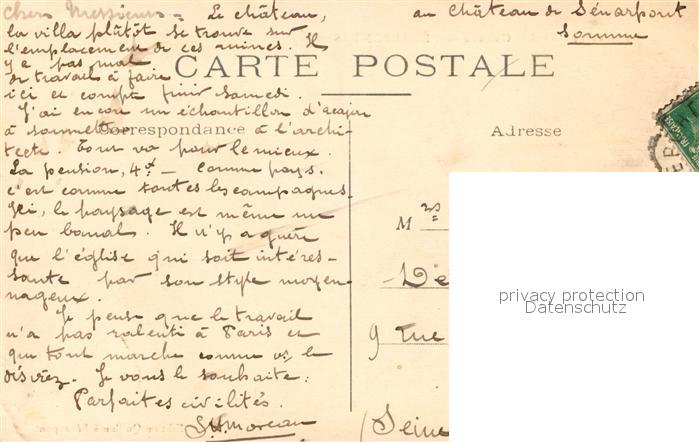 Chers Messieurs = Le château,
la villa plutôt se trouve sur
l'emplacement de ces ruines. Il
y a pas mal
de travail à faire
ici et compte finir samedi.
J'ai encore un échantillon d'acajou
à soumettre à l'archi-
tecte. Tout va pour le mieux.
La pension, 4f — Comme pays.
c'est comme toutes les campagnes
ici, le paysage est même un
peu banal. Il n'y a guère
que l'église qui soit intéres-
sante par son style moyen-
nageux.
Je pense que le travail
n'a pas ralenti à Paris et
que tout marche comme vs le
désirez. Je vous le souhaite.
Parfaites civilités.
Moreau
au château de Sénarpont
Somme
CARTE POSTALE
Correspondance
Adresse
M rs
De
9 rue
(Seine
privacy protection
Datenschutz